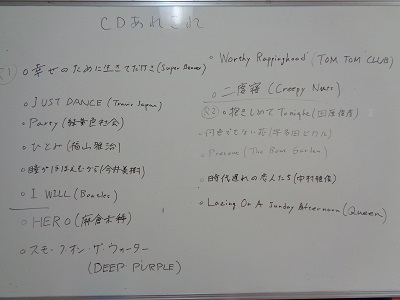 CDあれこれ
○幸せのために生きてだけさ(Super Beaver)
○JUST DANCE (Travis Japan)
○Party (緑黄色社会)
○ひとみ (福山雅治)
○瞳がほほえむから(今井美樹)
○I WILL (Beatles)
○HERO (麻倉未稀)
○スモーク・オン・ザ・ウォーター
(DEEP PURPLE)
○Worthy Rappinghood (TOM TOM CLUB)
○二度寝 (Creepy Nuts)
○抱きしめてTonight (田原俊彦)
○何色でもない花 (宇多田ヒカル)
○時代遅れの恋人たち (中村雅俊)
○Lazing On A Sunday Afternoon (Queen)